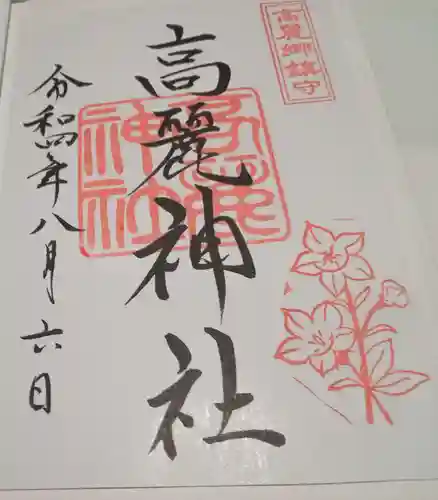 高麗郷鎮守
高麗神社
高麗神社
令和四年八月六日